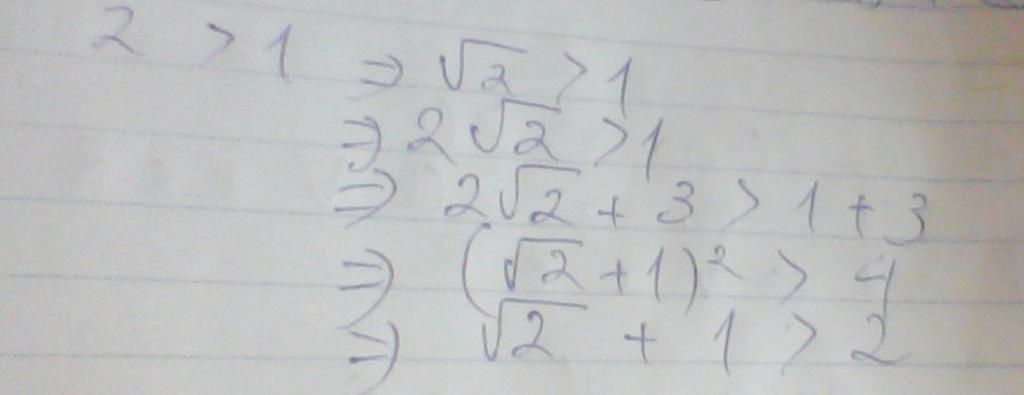 2 > 1 ⇒ √2 > 1
⇒ 2√2 > 1
⇒ 2√2 + 3 > 1 + 3
⇒ (√2 + 1)² > 4
⇒ √2 + 1 > 2